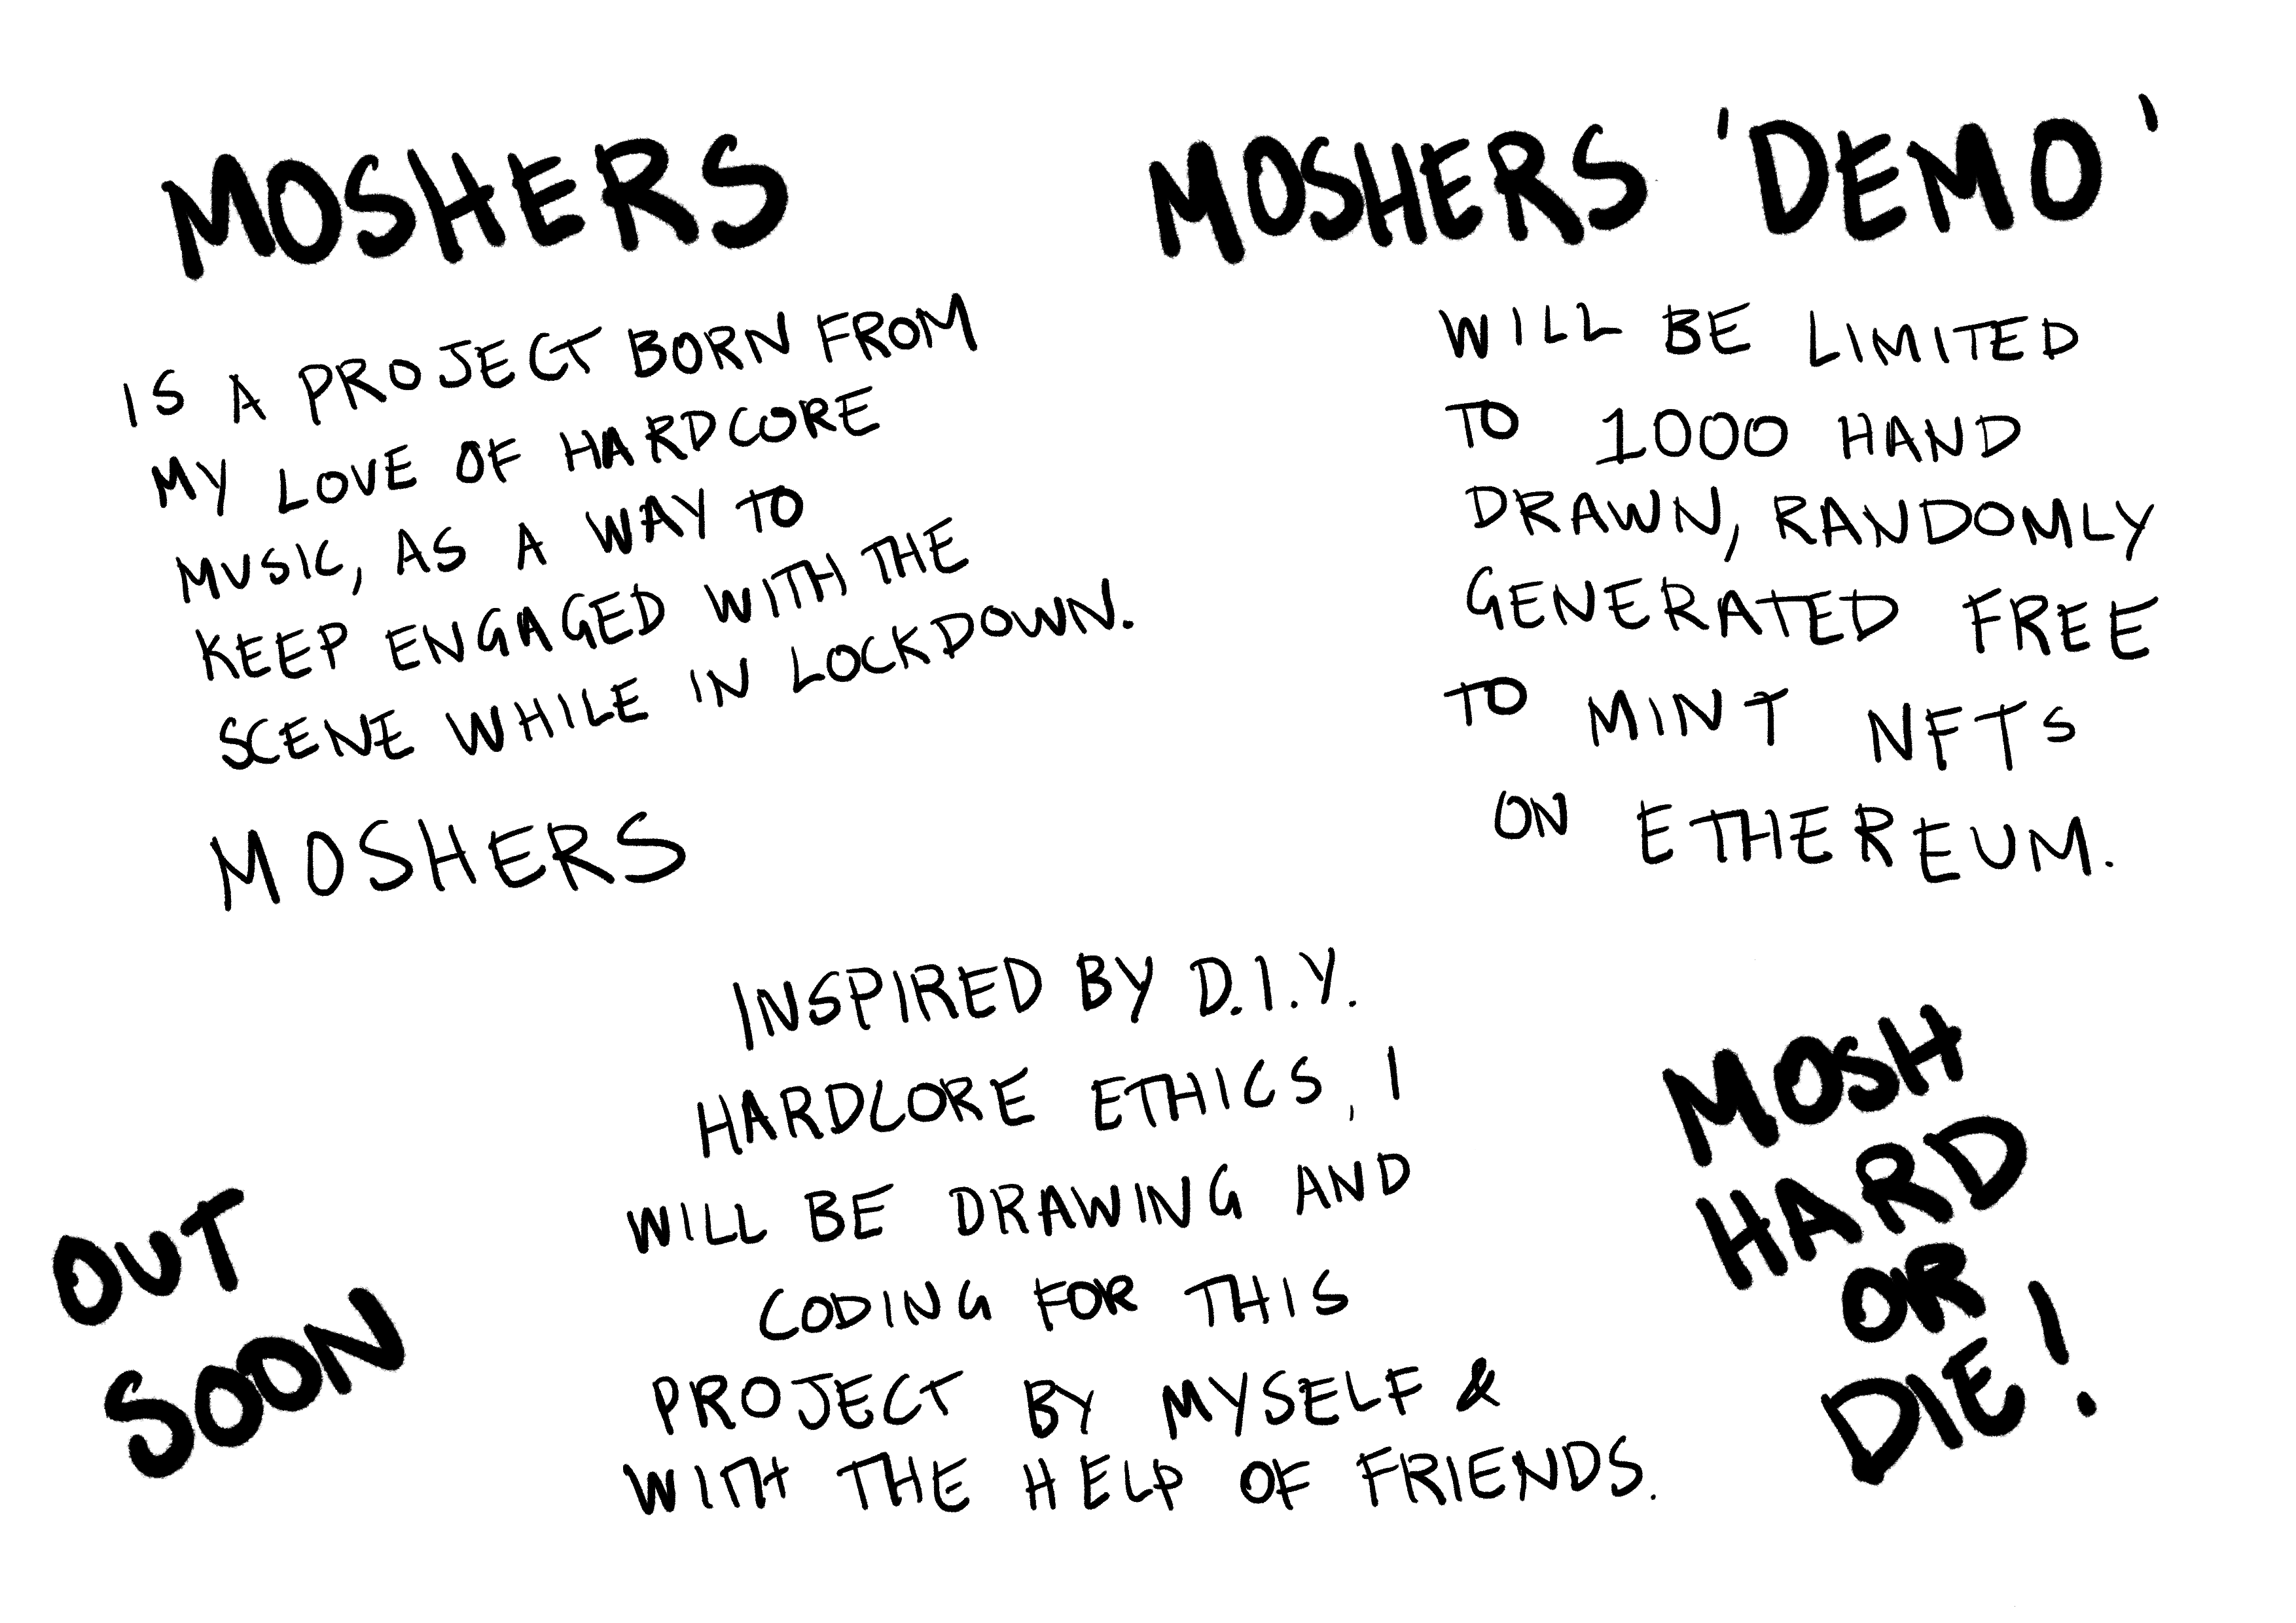 MOSHERS
IS A PROJECT BORN FROM
MY LOVE OF HARDCORE
MUSIC, AS A WAY TO
KEEP ENGAGED WITH THE
SCENE WHILE IN LOCKDOWN.
MOSHERS
MOSHERS 'DEMO'
WILL BE LIMITED
TO 1000 HAND
DRAWN, RANDOMLY
GENERATED FREE
TO MINT NFTs
ON ETHEREUM.
INSPIRED BY D.I.Y.
HARDCORE ETHICS, I
WILL BE DRAWING AND
CODING FOR THIS
PROJECT BY MYSELF &
WITH THE HELP OF FRIENDS.
OUT
SOON
MOSH
HARD
OR
DIE!